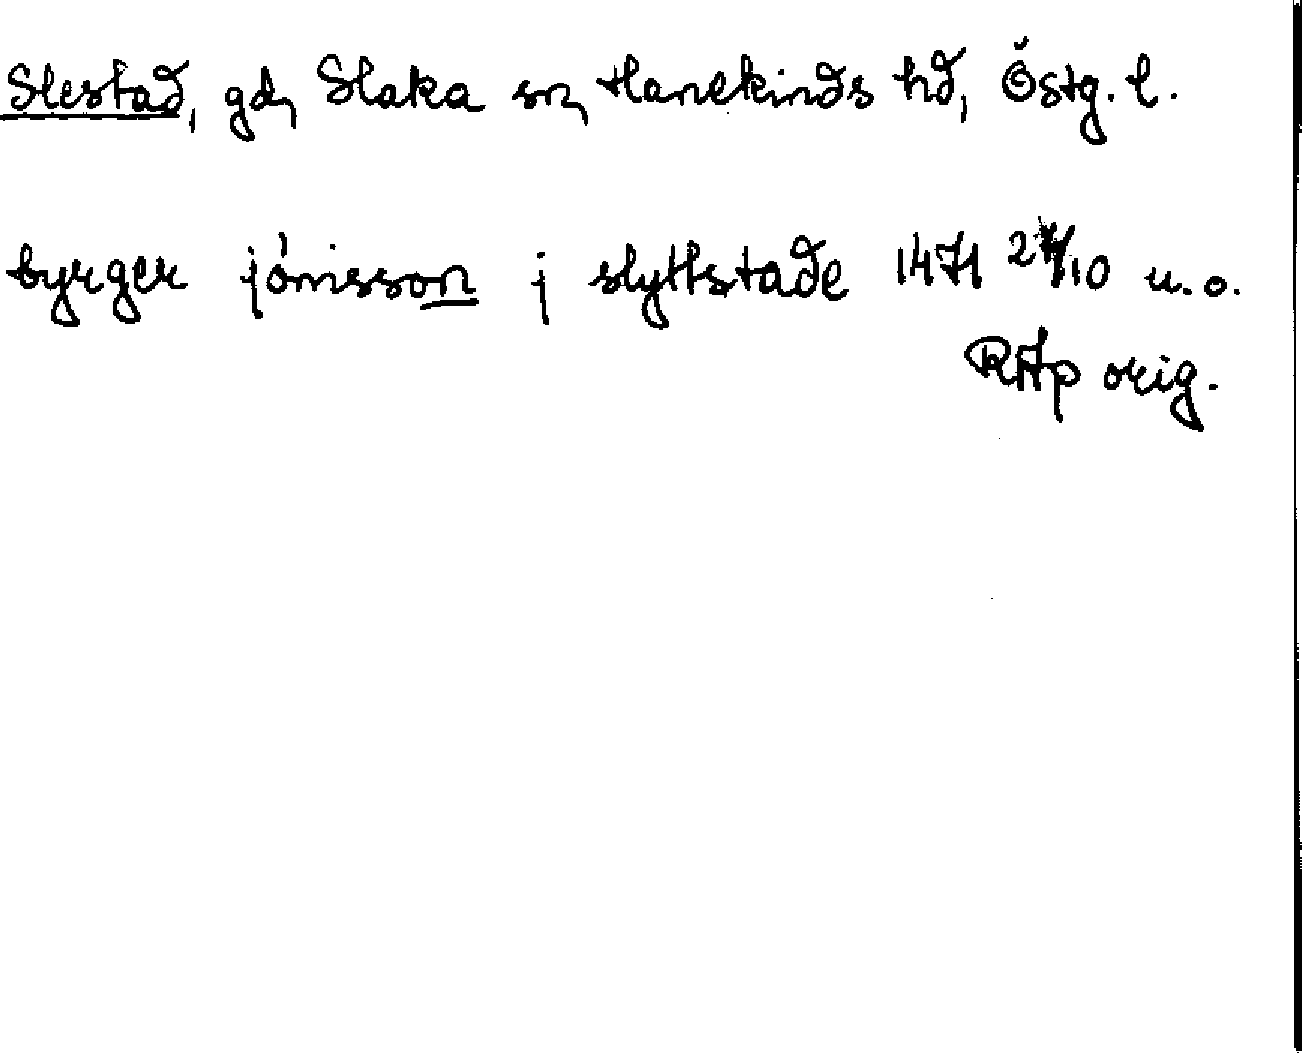 Slestad, gd, Slaka sn, Hanekinds hd, Östg. l.
byrger jónisson j slyttstade 1471 /10 u.o.
RAp orig.